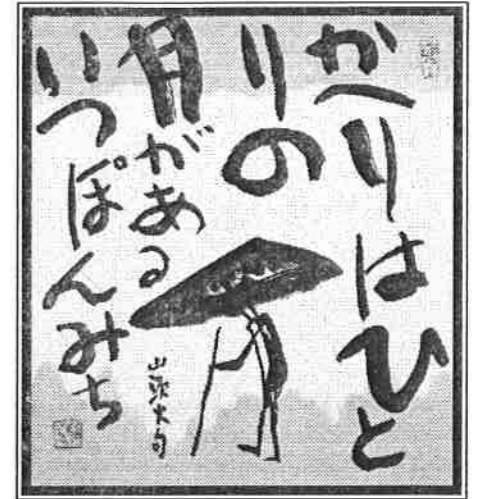 かへりはひと
りの
月がある
いつぽんみち
山頭火句